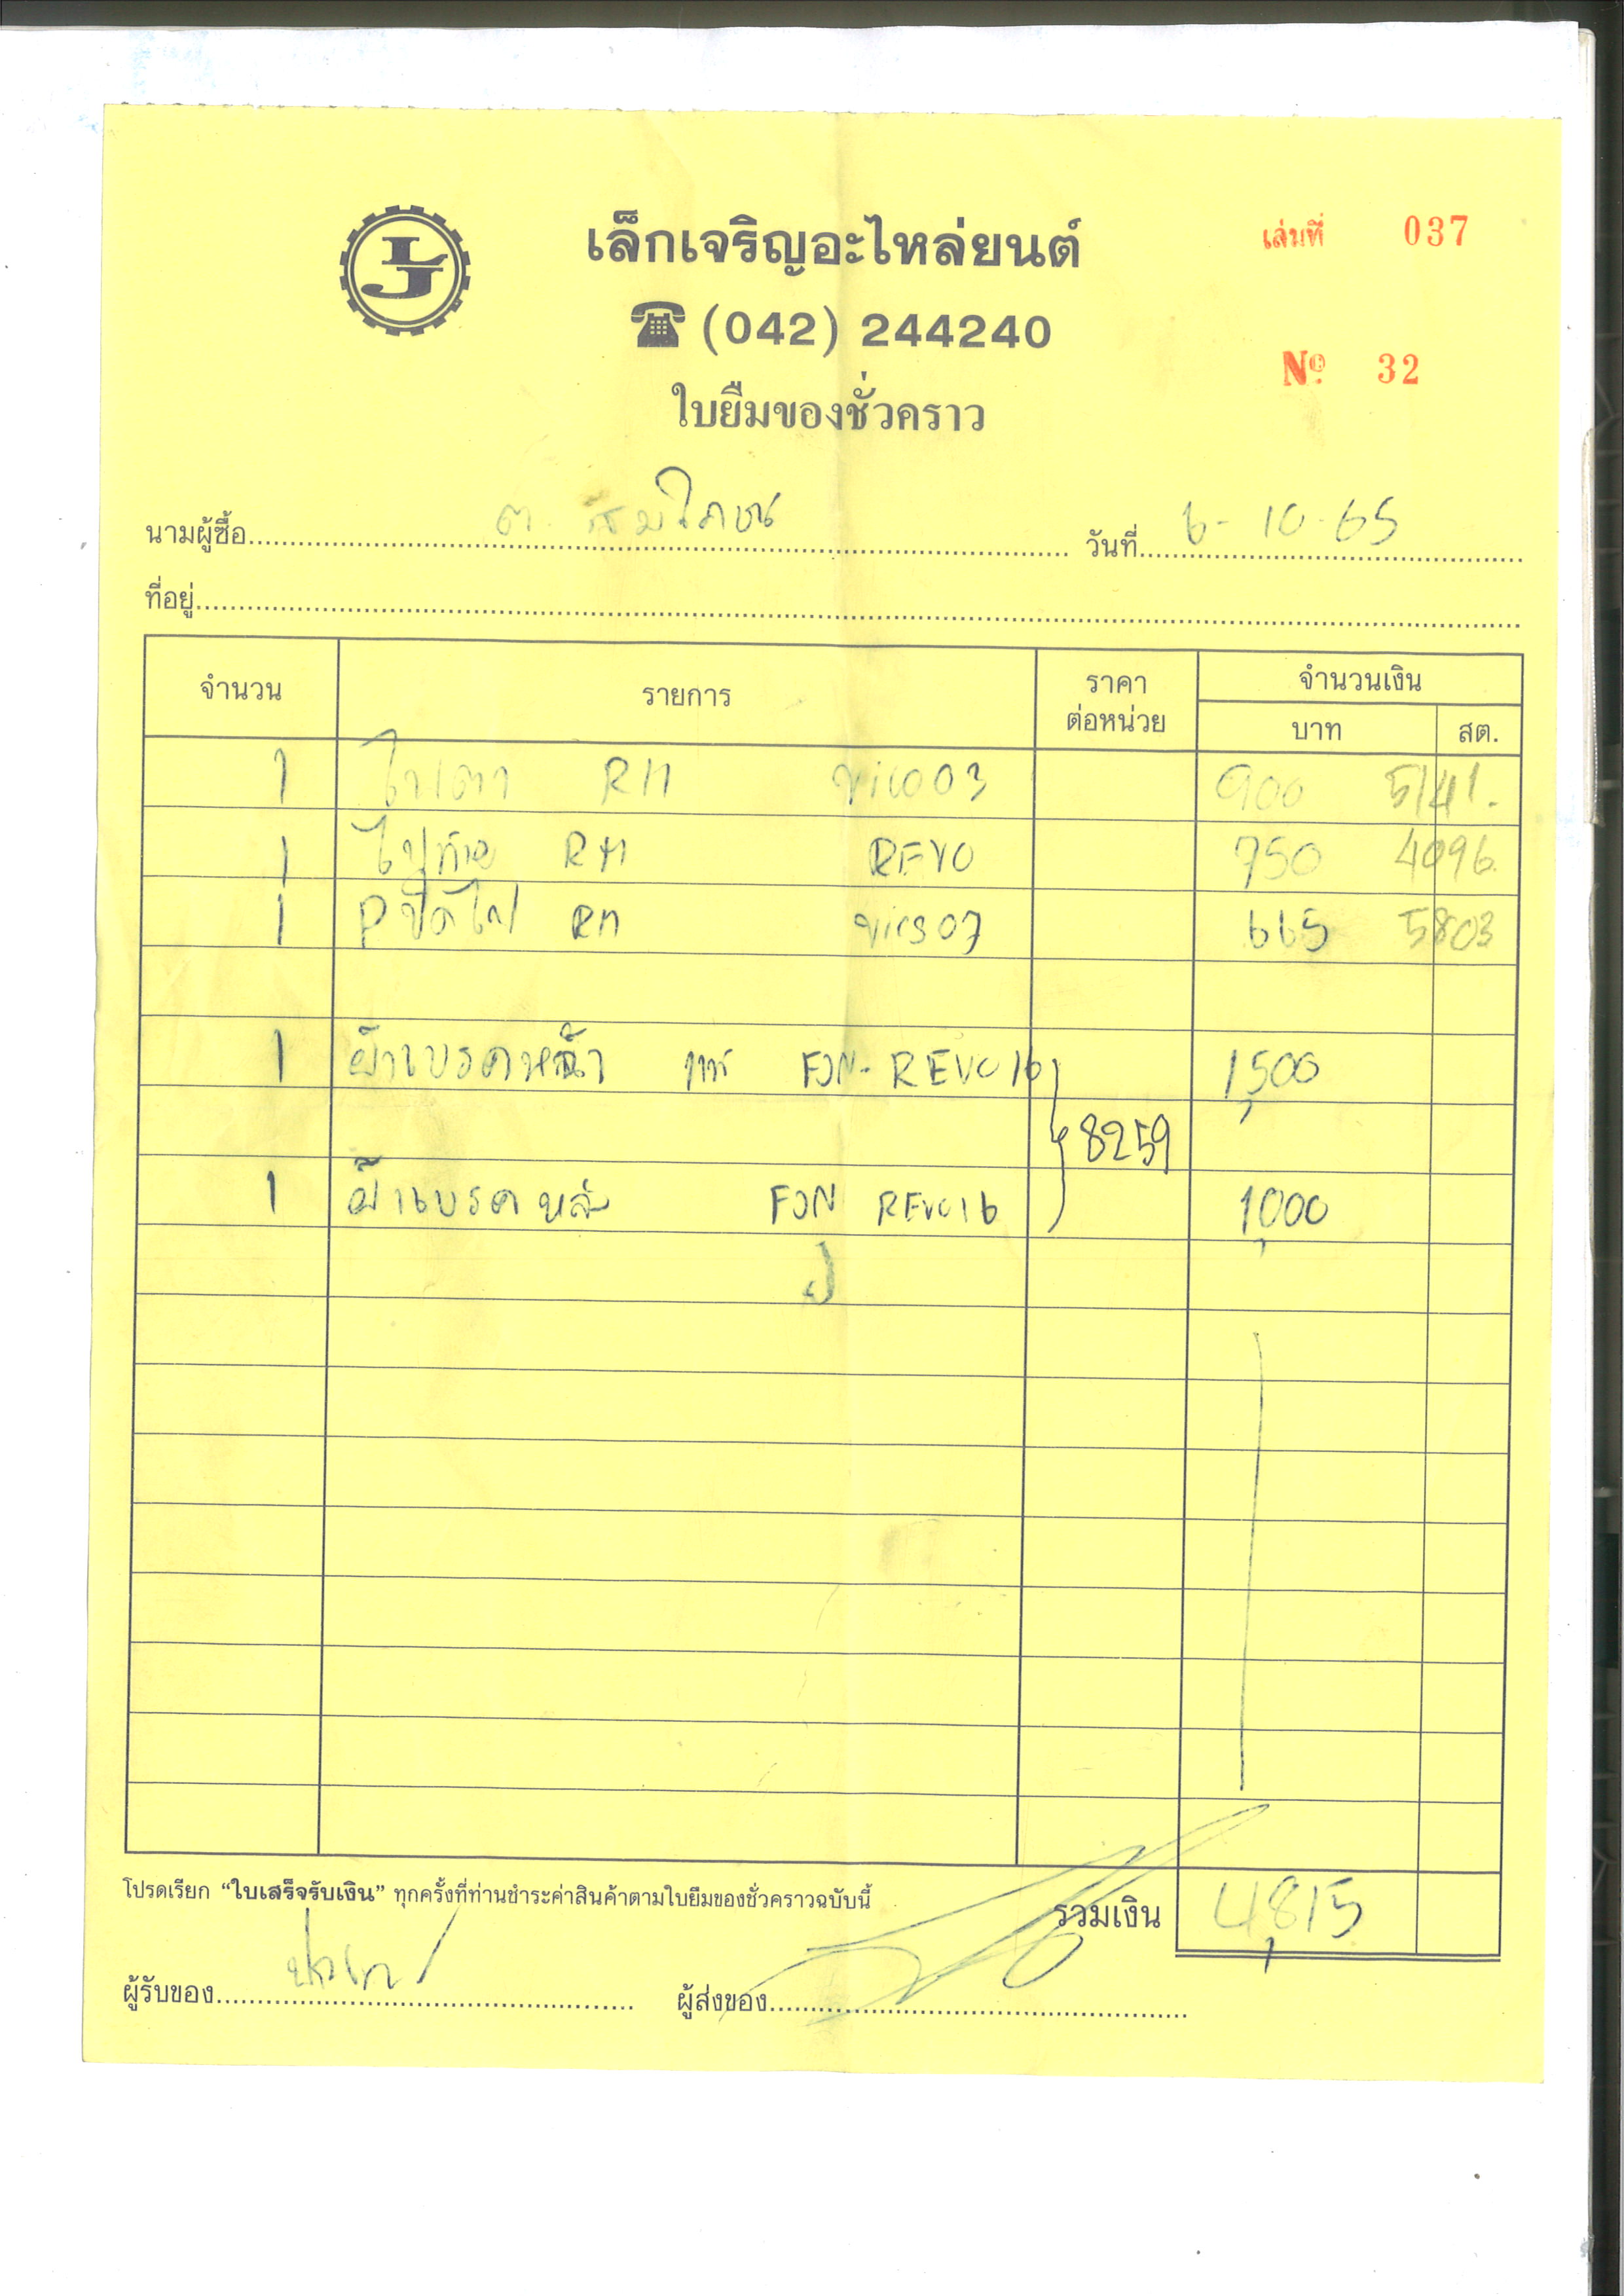 LJ
เล็กเจริญอะไหล่ยนต์
เล่มที่ 037
(042) 244240
Nº 32
ใบยืมของชั่วคราว
นามผู้ซื้อ วันที่ 6-10-65
ที่อยู่
จำนวน รายการ ราคาต่อหน่วย จำนวนเงิน
บาท สต.
1 ไฟตา RH vigo 03 900 5141.
1 ไฟท้าย RH REVO 750 4096.
1 RH vigo 07 665 5803
1 ผ้าเบรคหน้า FJN-REVO 16 1,500
8259
1 ผ้าเบรคหลัง FJN REVO 16 1,000
โปรดเรียก “ใบเสร็จรับเงิน” ทุกครั้งที่ท่านชำระค่าสินค้าตามใบยืมของชั่วคราวฉบับนี้
รวมเงิน 4,815
ผู้รับของ ผู้ส่งของ